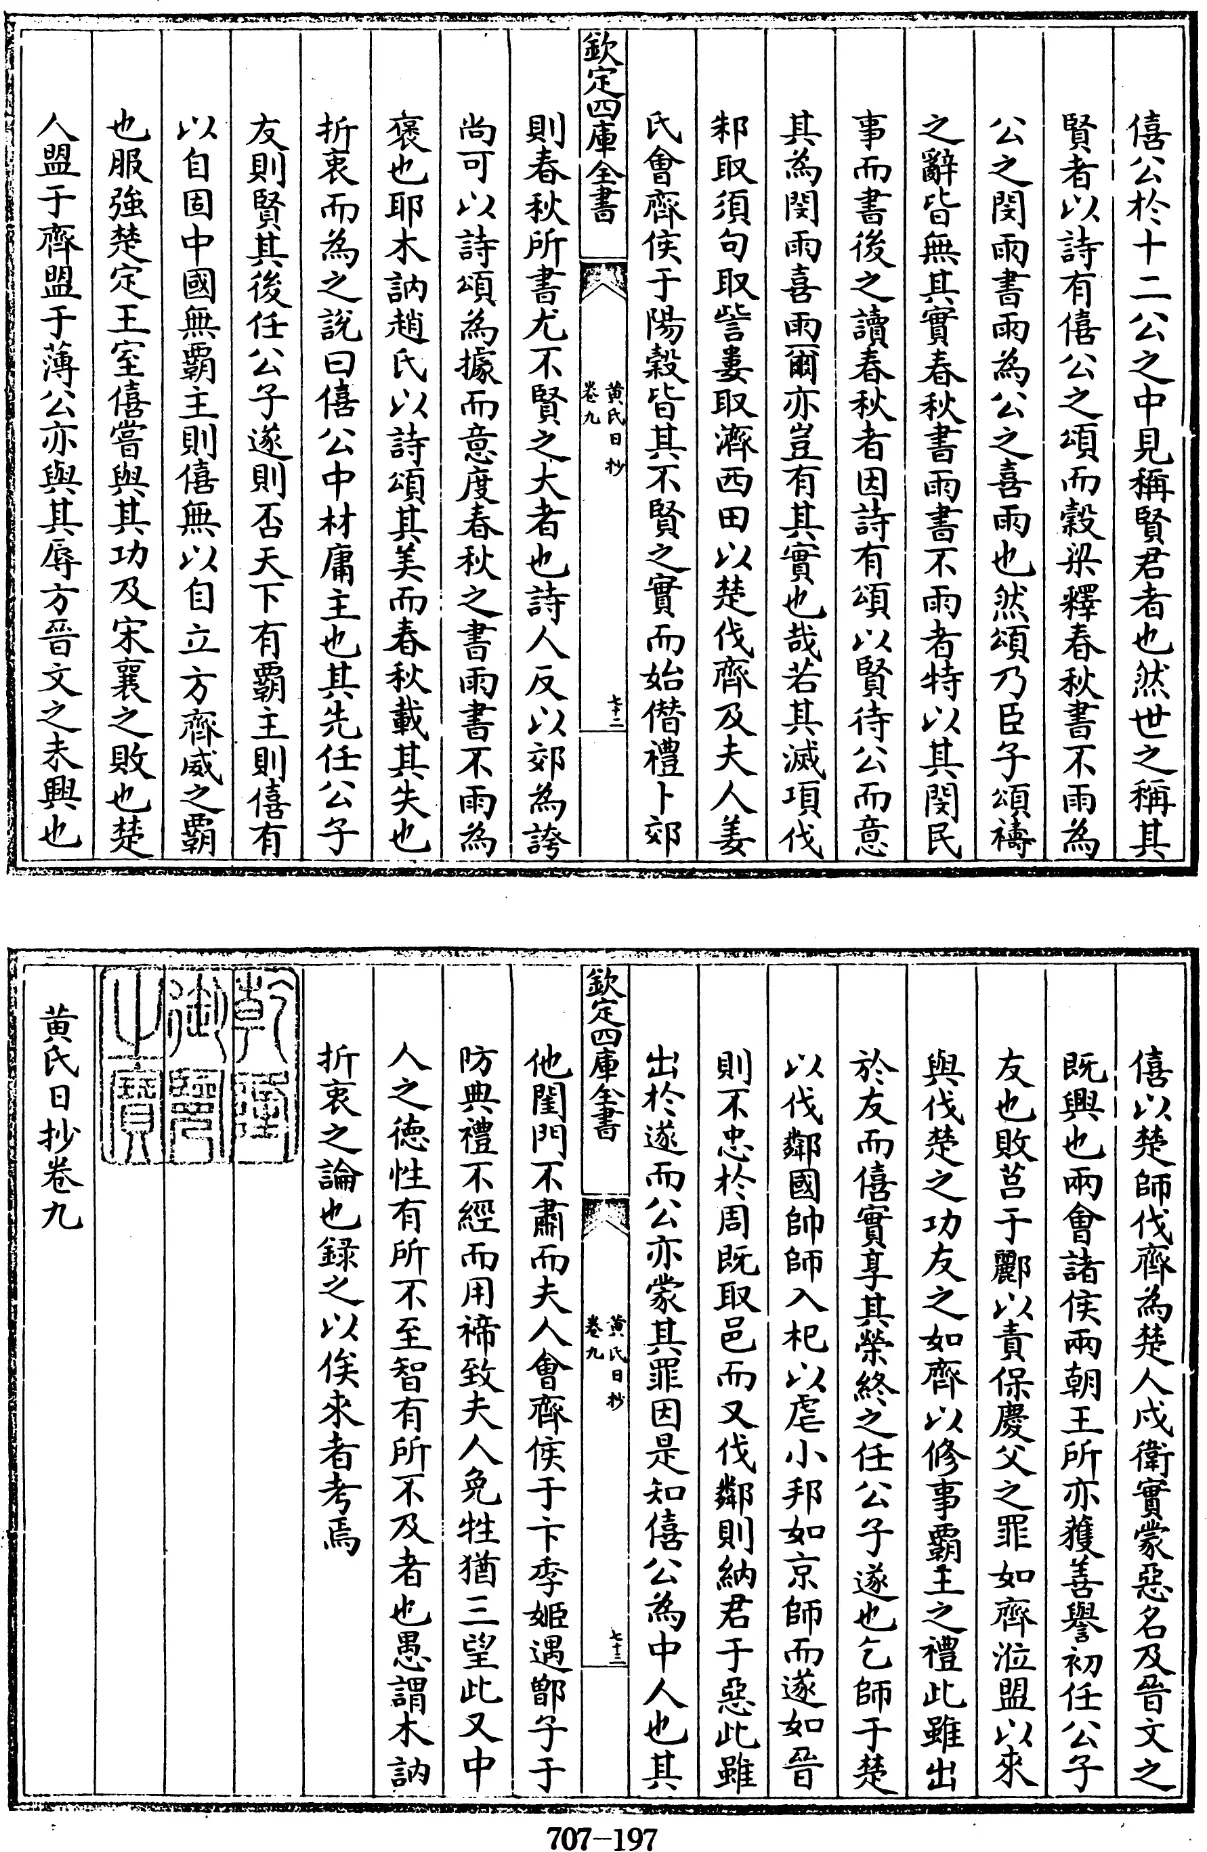 僖公於十二公之中見稱賢君者也然世之稱其
賢者以詩有僖公之頌而穀梁釋春秋書不雨為
公之閔雨書雨為公之喜雨也然頌乃臣子頌禱
之辭皆無其實春秋書雨書不雨者特以其閔民
事而書後之讀春秋者因詩有頌以賢待公而意
其為閔雨喜雨爾亦豈有其實也哉若其滅項伐
邾取須句取訾婁取濟西田以楚伐齊及夫人姜
氏會齊侯于陽穀皆其不賢之實而始僭禮卜郊
欽定四庫全書
黃氏日抄
卷九
七十二
則春秋所書尤不賢之大者也詩人反以郊為誇
尚可以詩頌為據而意度春秋之書雨書不雨為
褒也耶木訥趙氏以詩頌其美而春秋載其失也
折衷而為之說曰僖公中材庸主也其先任公子
友則賢其後任公子遂則否天下有覇主則僖有
以自固中國無覇主則僖無以自立方齊威之覇
也服強楚定王室僖嘗與其功及宋襄之敗也楚
人盟于齊盟于薄公亦與其辱方晉文之未興也
僖以楚師伐齊為楚人戍衛實蒙惡名及晉文之
既興也兩會諸侯兩朝王所亦獲善譽初任公子
友也敗莒于酈以責保慶父之罪如齊涖盟以來
與伐楚之功友之如齊以修事覇主之禮此雖出
於友而僖實享其榮終之任公子遂也乞師于楚
以伐鄰國帥師入杞以虐小邦如京師而遂如晉
則不忠於周既取邑而又伐鄰則納君于惡此雖
出於遂而公亦蒙其罪因是知僖公為中人也其
欽定四庫全書
黃氏日抄
卷九
七十三
他閨門不肅而夫人會齊侯于卞季姬遇鄫子于
防典禮不經而用禘致夫人免牲猶三望此又中
人之德性有所不至智有所不及者也愚謂木訥
折衷之論也録之以俟來者考焉
乾隆
御覽
之寶
黃氏日抄卷九
707-197